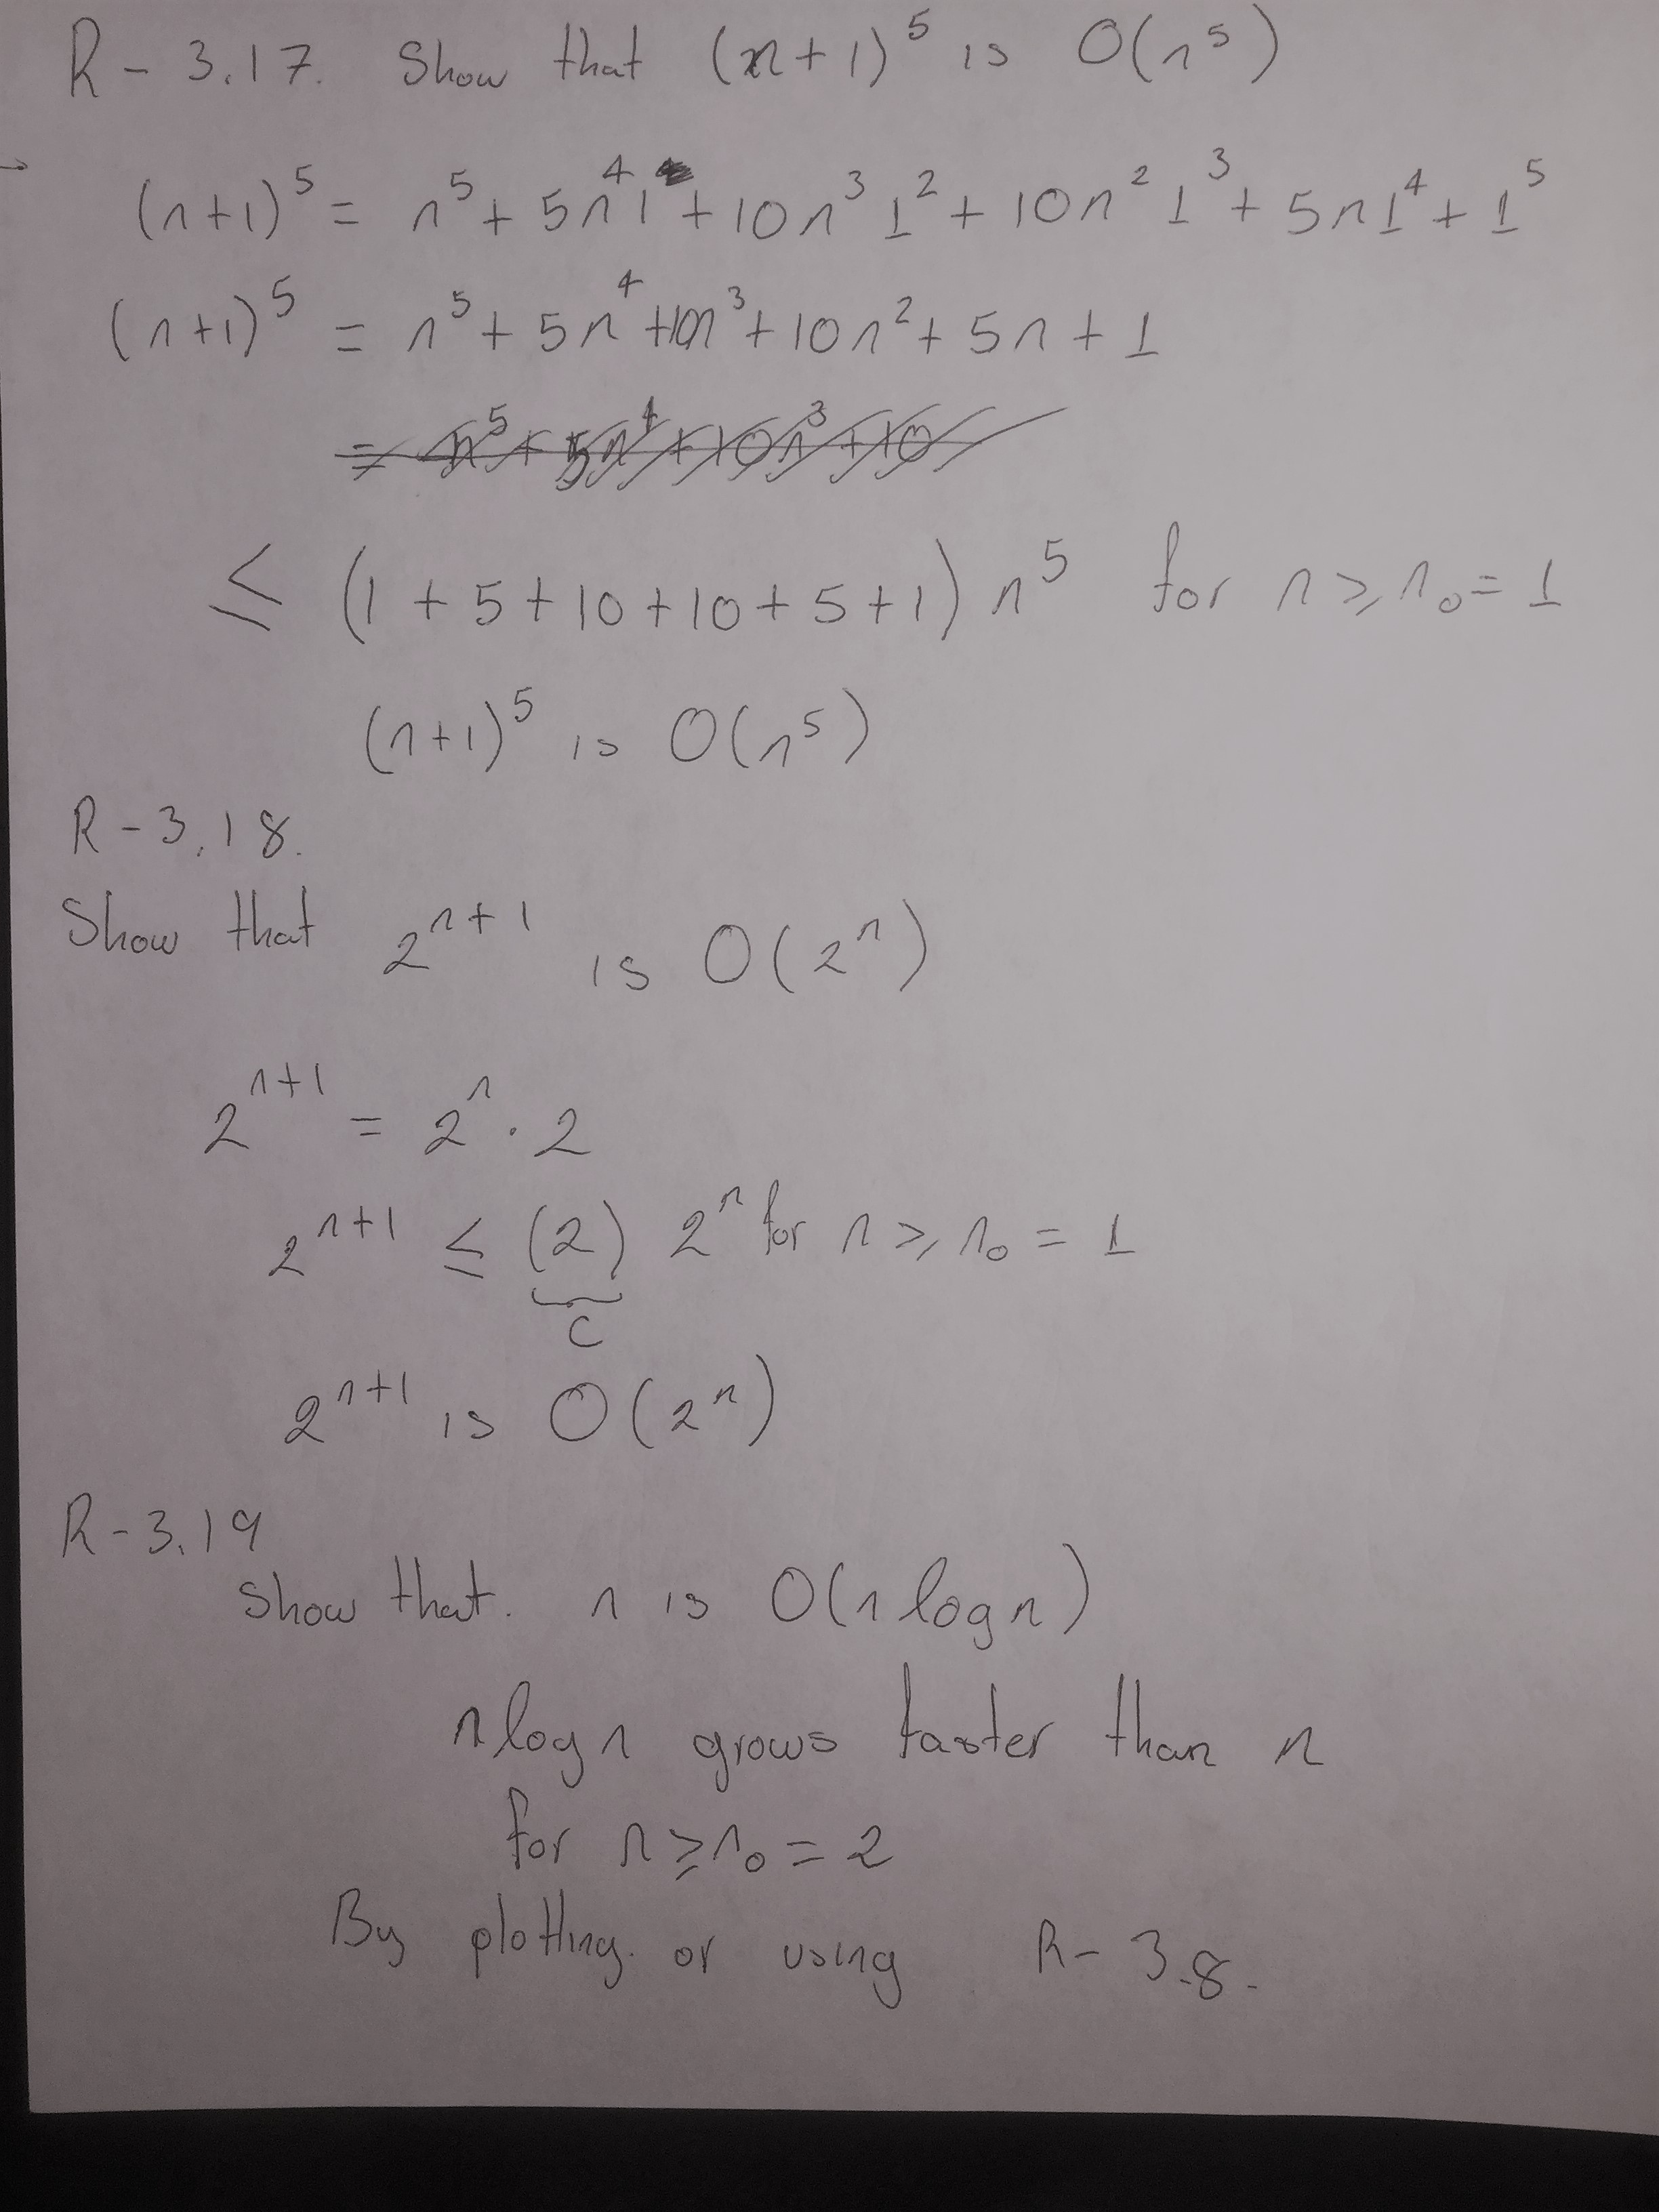 R - 3.17. Show that (n+1)⁵ is O(n⁵)
(n+1)⁵ = n⁵ + 5n⁴1 + 10n³1² + 10n²1³ + 5n1⁴ + 1⁵
(n+1)⁵ = n⁵ + 5n⁴ + 10n³ + 10n² + 5n + 1
= n⁵ + 5n⁴ + 10n³ + 10
≤ (1 + 5 + 10 + 10 + 5 + 1) n⁵ for n ≥ n₀ = 1
(n+1)⁵ is O(n⁵)
R - 3.18.
Show that 2ⁿ⁺¹ is O(2ⁿ)
2ⁿ⁺¹ = 2ⁿ · 2
2ⁿ⁺¹ ≤ (2) 2ⁿ for n ≥ n₀ = 1
C
2ⁿ⁺¹ is O(2ⁿ)
R - 3.19
Show that. n is O(n log n)
n log n grows faster than n
for n ≥ n₀ = 2
By plotting. or using R - 3.8.